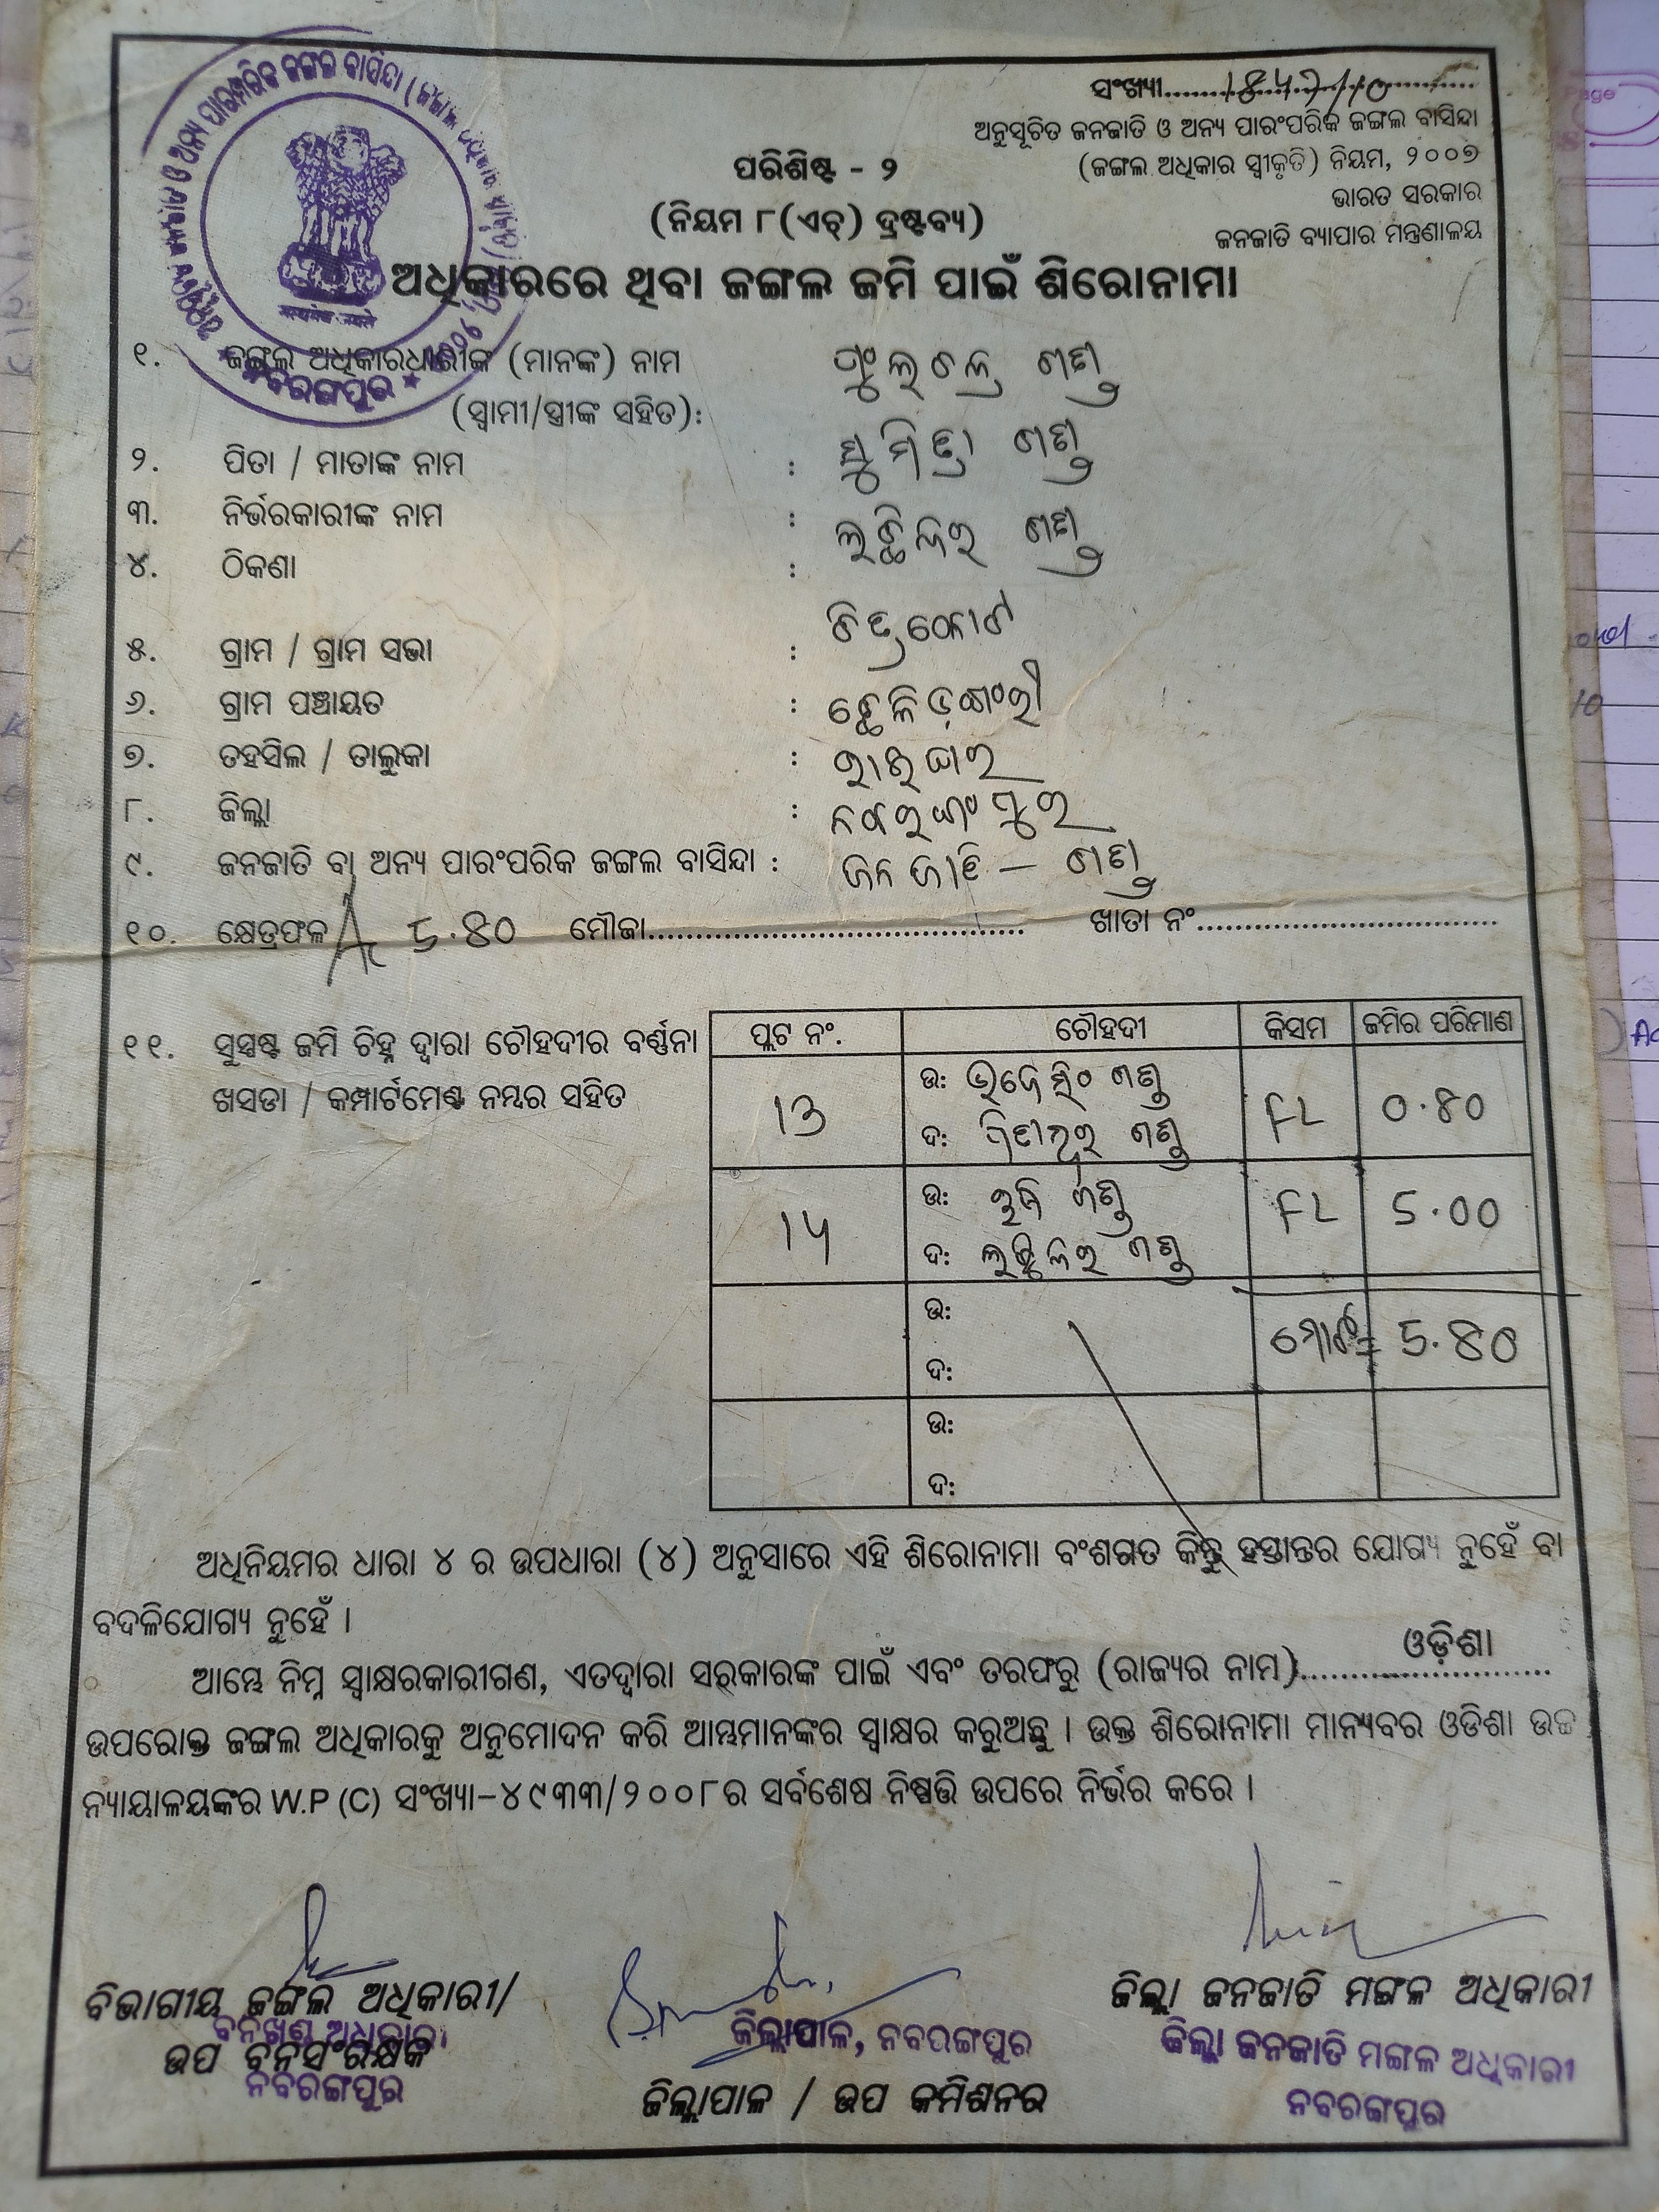 ସଂଖ୍ୟା
ଅନୁସୂଚିତ ଜନଜାତି ଓ ଅନ୍ୟ ପାରଂପରିକ ଜଙ୍ଗଲ ବାସିନ୍ଦା
(ଜଙ୍ଗଲ ଅଧିକାର ସ୍ୱୀକୃତି) ନିୟମ, ୨୦୦୭
ଭାରତ ସରକାର
ଜନଜାତି ବ୍ୟାପାର ମନ୍ତ୍ରଣାଳୟ
ପରିଶିଷ୍ଟ - ୨
(ନିୟମ ୮(ଏଚ୍) ଦ୍ରଷ୍ଟବ୍ୟ)
ଅଧିକାରରେ ଥିବା ଜଙ୍ଗଲ ଜମି ପାଇଁ ଶିରୋନାମା
୧. ଜଙ୍ଗଲ ଅଧିକାରଧାରୀଙ୍କ (ମାନଙ୍କ) ନାମ
(ସ୍ୱାମୀ/ସ୍ତ୍ରୀଙ୍କ ସହିତ):
୨. ପିତା / ମାତାଙ୍କ ନାମ :
୩. ନିର୍ଭରକାରୀଙ୍କ ନାମ :
୪. ଠିକଣା :
୫. ଗ୍ରାମ / ଗ୍ରାମ ସଭା :
୬. ଗ୍ରାମ ପଞ୍ଚାୟତ :
୭. ତହସିଲ / ତାଲୁକା : ରାଇଘର
୮. ଜିଲ୍ଲା : ନବରଂଗପୁର
୯. ଜନଜାତି ବା ଅନ୍ୟ ପାରଂପରିକ ଜଙ୍ଗଲ ବାସିନ୍ଦା : ଜନଜାତି - ଗଣ୍ଡ
୧୦. କ୍ଷେତ୍ରଫଳ Ac 5.80 ମୌଜା ଖାତା ନଂ
୧୧. ସୁସ୍ପଷ୍ଟ ଜମି ଚିହ୍ନ ଦ୍ୱାରା ଚୌହଦୀର ବର୍ଣ୍ଣନା
ଖସଡା / କମ୍ପାର୍ଟମେଣ୍ଟ ନମ୍ବର ସହିତ
ପ୍ଲଟ ନଂ. ଚୌହଦୀ କିସମ ଜମିର ପରିମାଣ
13 ଉ: ଗଣ୍ଡ FL 0.80
ଦ: ଗଣ୍ଡ
14 ଉ: ଗଣ୍ଡ FL 5.00
ଦ: ଗଣ୍ଡ
ଉ: ମୋଟ = 5.80
ଦ:
ଉ:
ଦ:
ଅଧିନିୟମର ଧାରା ୪ ର ଉପଧାରା (୪) ଅନୁସାରେ ଏହି ଶିରୋନାମା ବଂଶଗତ କିନ୍ତୁ ହସ୍ତାନ୍ତର ଯୋଗ୍ୟ ନୁହେଁ ବା
ବଦଳିଯୋଗ୍ୟ ନୁହେଁ ।
ଆମ୍ଭେ ନିମ୍ନ ସ୍ୱାକ୍ଷରକାରୀଗଣ, ଏତଦ୍ୱାରା ସରକାରଙ୍କ ପାଇଁ ଏବଂ ତରଫରୁ (ରାଜ୍ୟର ନାମ) ଓଡ଼ିଶା
ଉପରୋକ୍ତ ଜଙ୍ଗଲ ଅଧିକାରକୁ ଅନୁମୋଦନ କରି ଆମ୍ଭମାନଙ୍କର ସ୍ୱାକ୍ଷର କରୁଅଛୁ । ଉକ୍ତ ଶିରୋନାମା ମାନ୍ୟବର ଓଡିଶା ଉଚ୍ଚ
ନ୍ୟାୟାଳୟଙ୍କର W.P (C) ସଂଖ୍ୟା-୪୯୩୩/୨୦୦୮ର ସର୍ବଶେଷ ନିଷ୍ପତ୍ତି ଉପରେ ନିର୍ଭର କରେ ।
ବିଭାଗୀୟ ଜଙ୍ଗଲ ଅଧିକାରୀ/
ଉପ ବନସଂରକ୍ଷକ
ନବରଙ୍ଗପୁର
ଜିଲ୍ଲାପାଳ, ନବରଙ୍ଗପୁର
ଜିଲ୍ଲାପାଳ / ଉପ କମିଶନର
ଜିଲ୍ଲା ଜନଜାତି ମଙ୍ଗଳ ଅଧିକାରୀ
ଜିଲ୍ଲା ଜନଜାତି ମଙ୍ଗଳ ଅଧିକାରୀ
ନବରଙ୍ଗପୁର